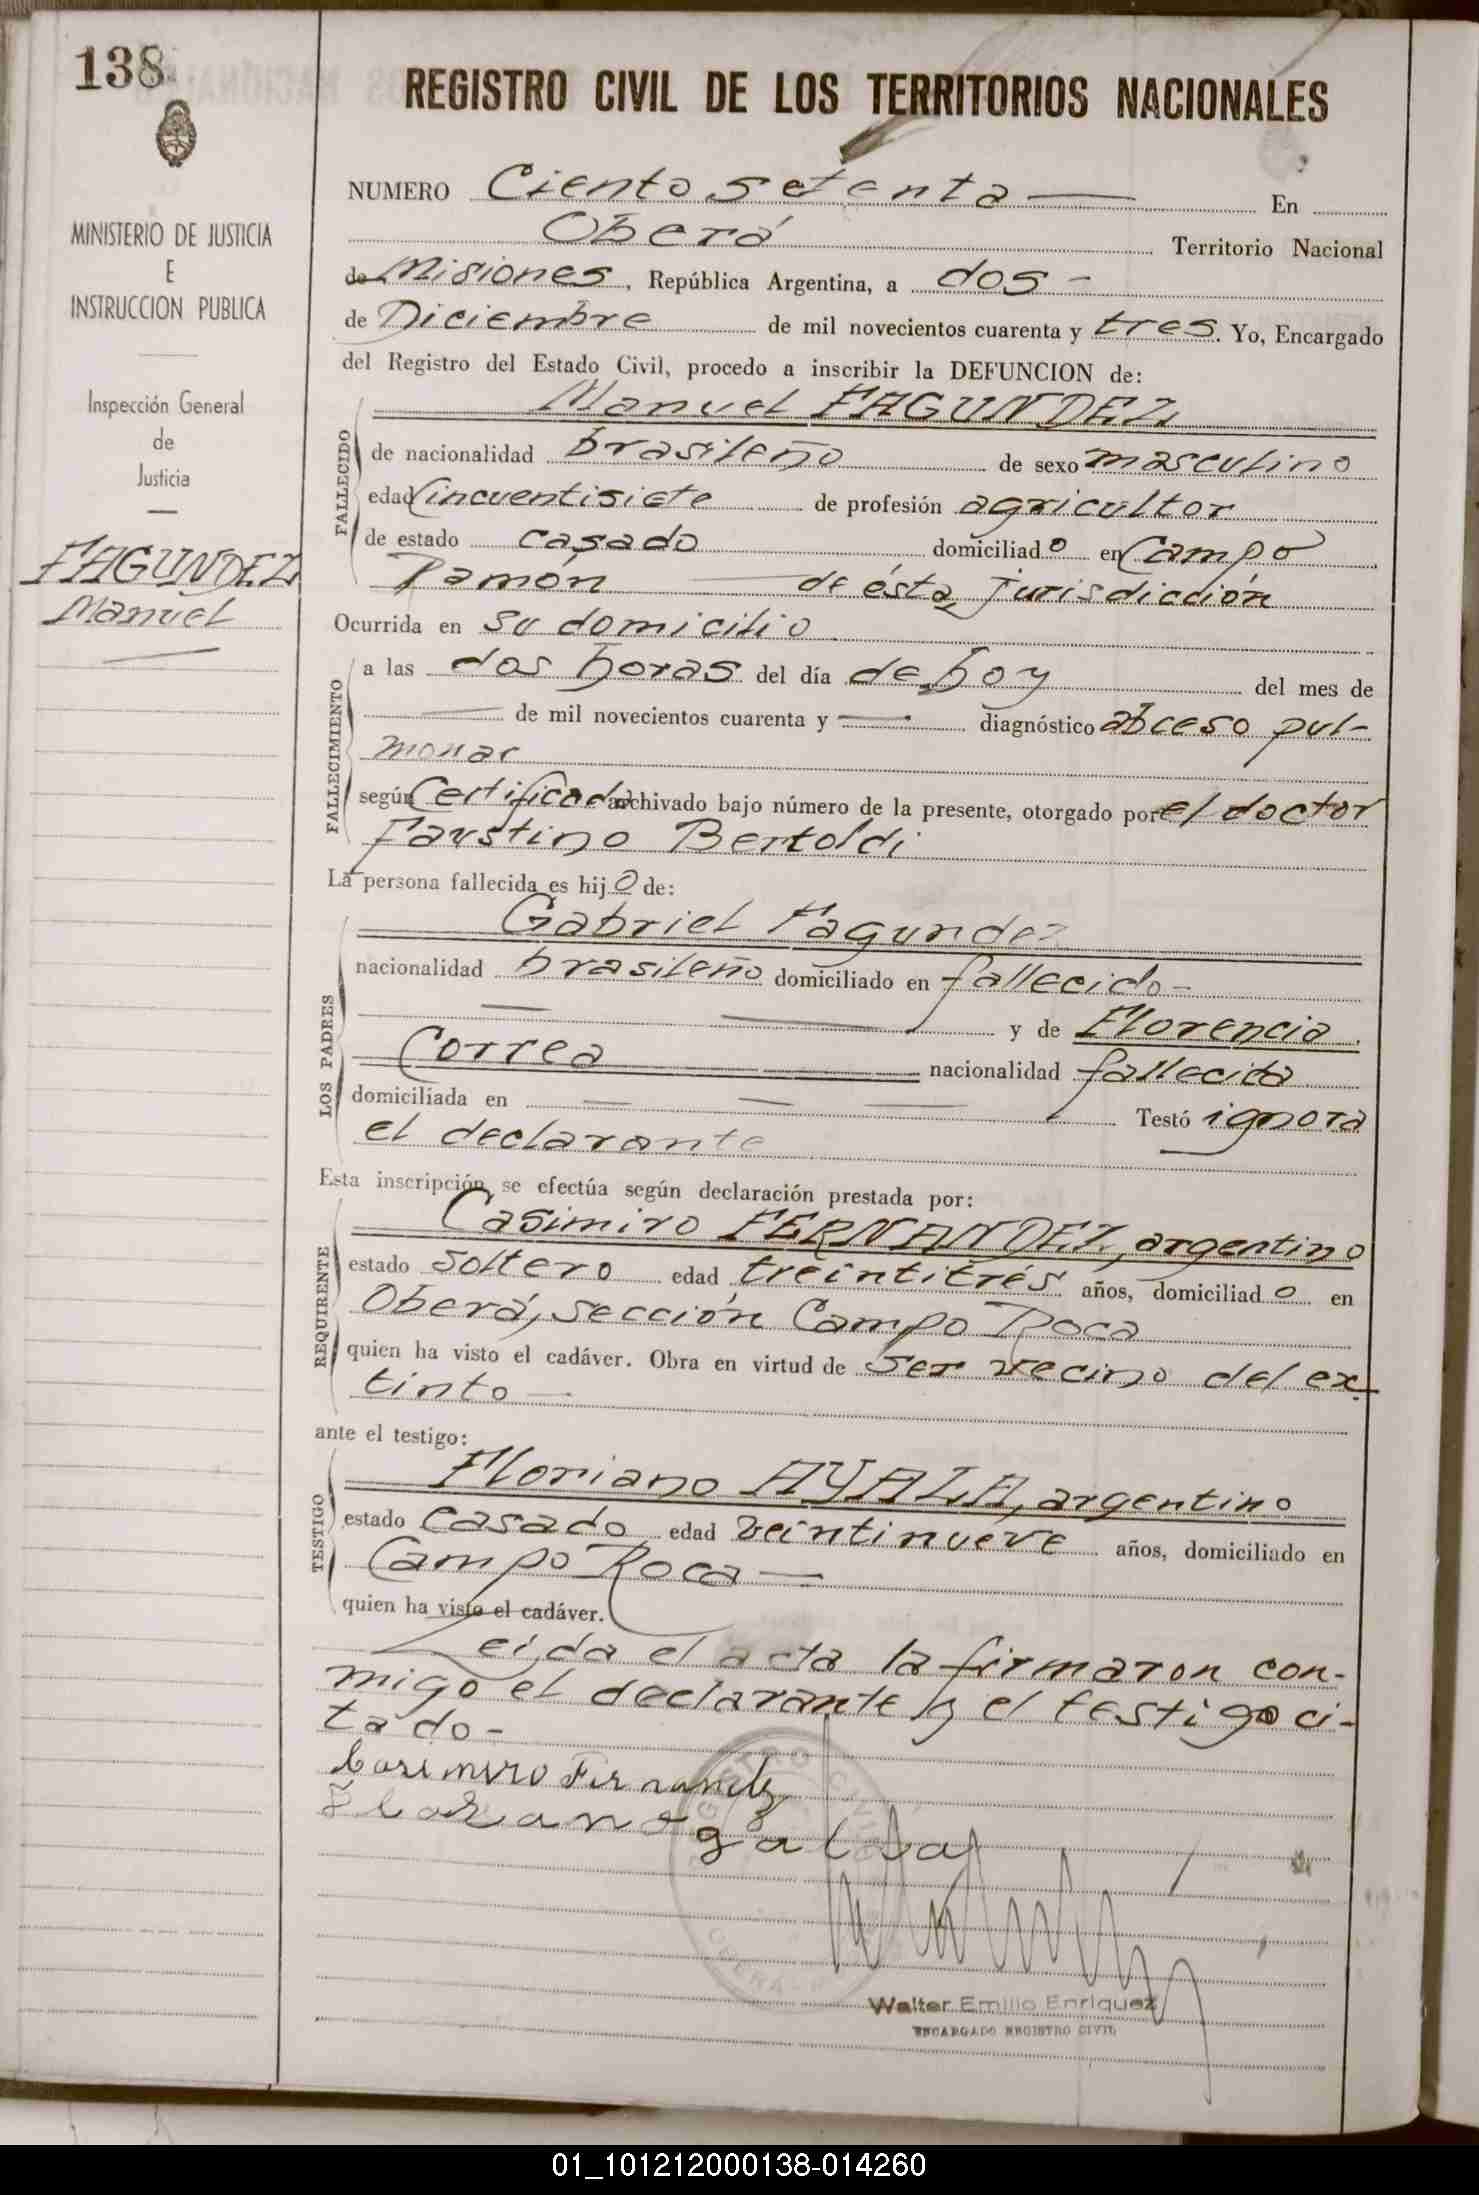 138
REGISTRO CIVIL DE LOS TERRITORIOS NACIONALES
MINISTERIO DE JUSTICIA
E
INSTRUCCION PUBLICA
Inspección General
de
Justicia
FAGUNDEZ
Manuel
NUMERO Ciento setenta — En
Oberá Territorio Nacional
de Misiones, República Argentina, a dos -
de Diciembre de mil novecientos cuarenta y tres. Yo, Encargado
del Registro del Estado Civil, procedo a inscribir la DEFUNCION de:
Manuel FAGUNDEZ
FALLECIDO
de nacionalidad brasileño de sexo masculino
edad Cincuentisiete de profesión agricultor
de estado casado domiciliado en Campo
Ramón de ésta jurisdicción
Ocurrida en su domicilio
FALLECIMIENTO
a las dos horas del día de hoy del mes de
— de mil novecientos cuarenta y — diagnóstico abceso pul-
monar
según Certificado archivado bajo número de la presente, otorgado por el doctor
Faustino Bertoldi
La persona fallecida es hijo de:
LOS PADRES
Gabriel Fagundez
nacionalidad brasileño domiciliado en fallecido-
— — y de Florencia
Correa — nacionalidad fallecida
domiciliada en — — — Testó ignora
el declarante
Esta inscripción se efectúa según declaración prestada por:
REQUIRENTE
Casimiro FERNANDEZ, argentino
estado soltero edad treintitrés años, domiciliado en
Oberá, sección Campo Roca
quien ha visto el cadáver. Obra en virtud de ser vecino del ex-
tinto —
ante el testigo:
TESTIGO
Floriano AYALA, argentino
estado casado edad veintinueve años, domiciliado en
Campo Roca —
quien ha visto el cadáver.
Leída el acta la firmaron con-
migo el declarante y el testigo ci-
tado-
Casimiro Fernandez
REGISTRO CIVIL
OBERÁ
Walter Emilio Enriquez
ENCARGADO REGISTRO CIVIL
01_101212000138-014260